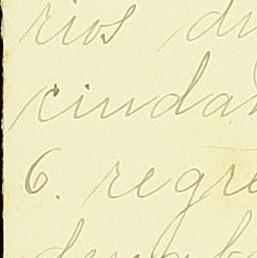 rios du
ciudad
6. regre